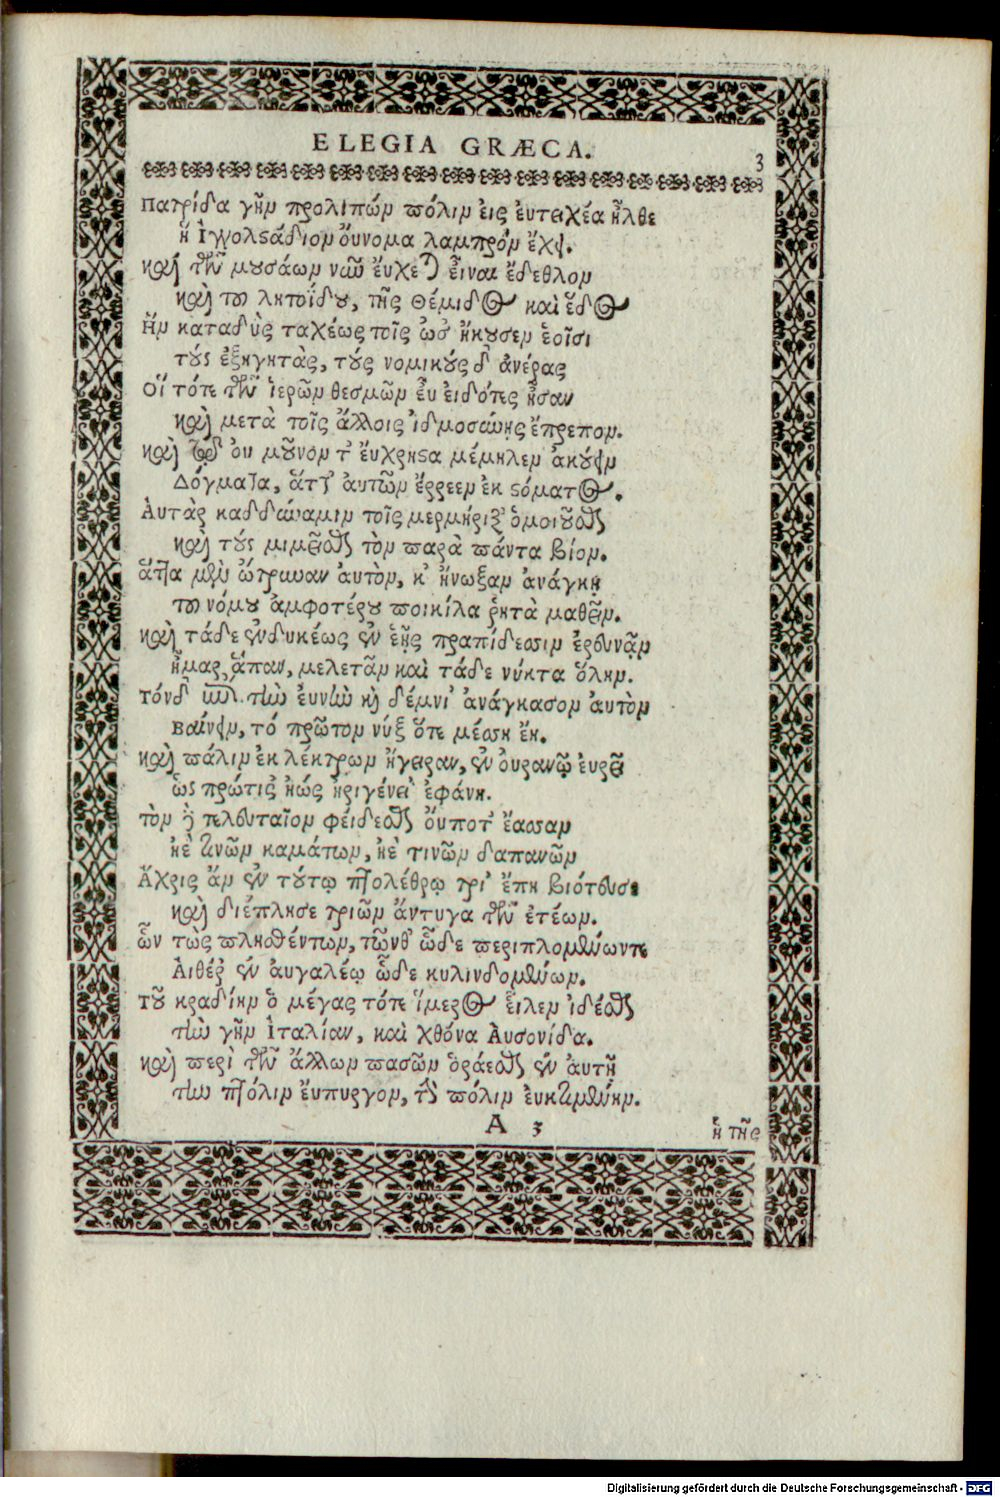 ELEGIA GRÆCA.
3
Πατρίδα γῆν προλιπὼν πόλιν εἰς ἐυτειχέα ἦλθε
ἣ Ἰγγολστάδιον ὄυνομα λαμπρὸν ἔχει.
καὶ τῶν μουσάων ναῶν ἔυχεται εἶναι ἔδεθλον
καὶ τοῦ λητοΐδου, τῆς Θέμιδος καὶ ἕδος
Ἣν καταδὺς ταχέως τοῖς ὠσὶ ἤκουσεν ἑοῖσι
τοὺς ἐξηγητὰς, τούς νομικούς δ' ἀνέρας
Οἵ τότε τῶν ἱερῶν θεσμῶν ἐυ ειδότες ἦσαν
καὶ μετὰ τοῖς ἄλλοις ἰδμοσύνης ἔπρεπον.
καὶ ὀυ μοῦνον τ' ἔυχρηστα μέμηλεν ἀκούειν
Δόγματα, ἅττ' ἀυτῶν ἔρρεεν ἐκ στόματος.
Ἀυτὰρ καδδύναμιν τοῖς μερμήριξ' ὁμοιοῦσθαι
καὶ τοὺς μιμεῖσθαι τὸν παρὰ πάντα βίον.
ἅττα μὲν ὤτρυναν ἀυτὸν, κ' ἤνωξαν ἀνάγκη
τοῦ νόμου ἀμφοτέρου ποικίλα ῥητὰ μαθεῖν.
καὶ τάδε ἐνδυκέως ἐν ἑῇς πραπίδεσσιν ἐρευνᾷν
ἦμαρ ἅπαν, μελετᾷν καὶ τάδε νύκτα ὅλην.
τόνδ' ἐπὶ τὴν ἐυνὴν καὶ δέμνι' ἀνάγκασον ἀυτὸν
βαίνειν, τό πρῶτον νὺξ ὅτε μέσση ἔη.
καὶ πάλιν ἐκ λέκτρων ἤγειραν, ἐν ὀυρανῷ ἐυρεῖ
ὡς πρώτις' ἠώς ἠριγένει' ἐφάνη.
τὸν δὲ τελευταῖον φείδεσθαι ὄυποτ' ἔασσαν
ἠὲ τινῶν καμάτων, ἠὲ τινῶν δαπανῶν
Ἄχρις ἂν ἐν τούτῳ πτολέθρῳ τρί' ἔπη βιότευσε
καὶ διέπλησε τριῶν ἄντυγα τῶν ἐτέων.
ὧν τὼς πλησθέντων, τῶνθ' ὧδε περιπλομένωντε
Ἀιθέρι ἐν ἀυγαλέῳ ὧδε κυλινδομένων.
Τοῦ κραδίην ὁ μέγας τότε ἵμερος εἷλεν ἰδέσθαι
τὴν γῆν Ἰταλίαν, καὶ χθόνα Ἀυσονίδα.
καὶ περὶ τῶν ἄλλων πασῶν ὁράεσθαι ἐν ἀυτῇ
τὴν πτόλιν ἔυπυργον, τὴν πόλιν ἐυκτιμένην.
A 3
ἣ τῆς
Digitalisierung gefördert durch die Deutsche Forschungsgemeinschaft - DFG